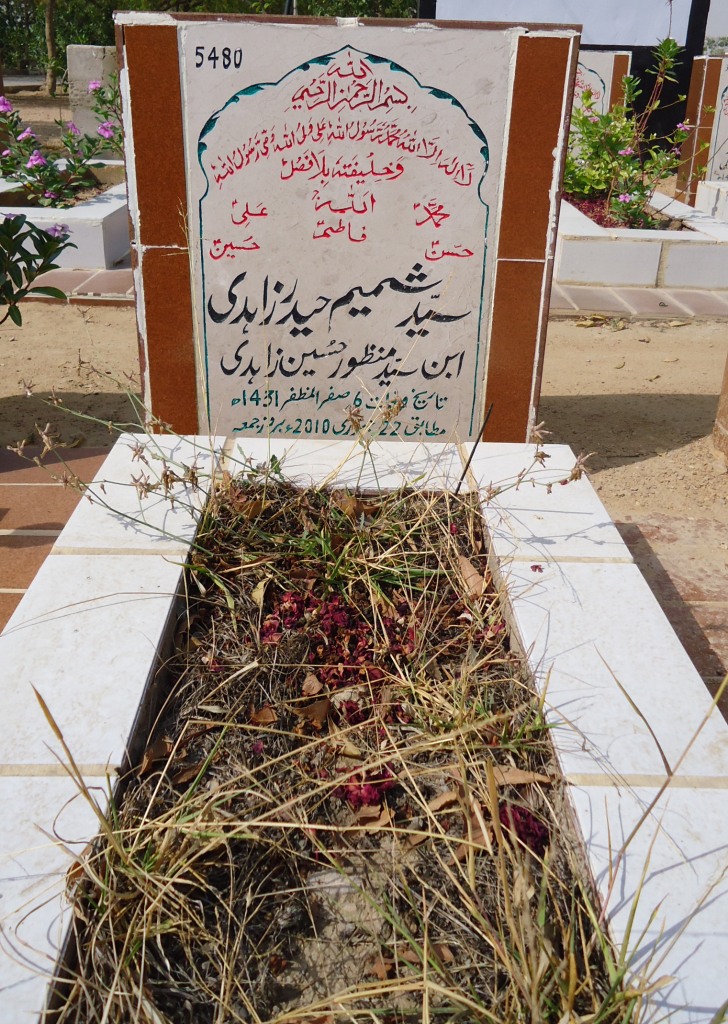 5480
الله
بسم الرحمن الرحیم
لا اله الا الله محمد رسول الله علی ولی الله وصی رسول الله
وخلیفته بلا فصل
محمدؐ اللهؒ علیؑ
حسنؑ فاطمہؑ حسینؑ
سیّد شمیم حیدر زاہدی
ابن سیّد منظور حسین زاہدی
تاریخ وفات 6 صفر المظفر 1431ھ
مطابق 22 جنوری 2010ء بروز جمعہ